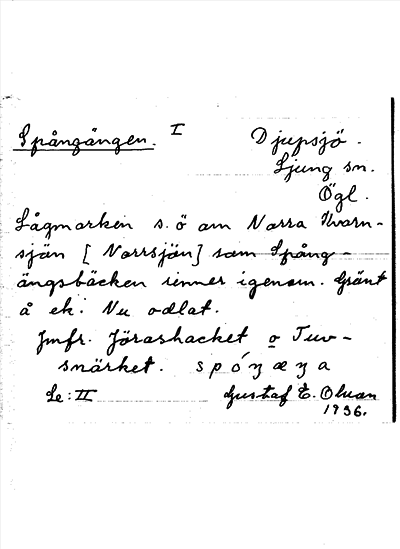 Spångängen. I Djupsjö.
Ljung sn.
Ögl.
Lågmarken s.ö om Norra Kvarn-
sjön [Norrsjön] som Spång-
ängsbäcken rinner igenom. Gränt
å ek. Nu odlat.
Jmfr. Jörashacket o Tuv-
snärket. spóŋæŋa
Se: II Gustaf E. Olsson
1936.